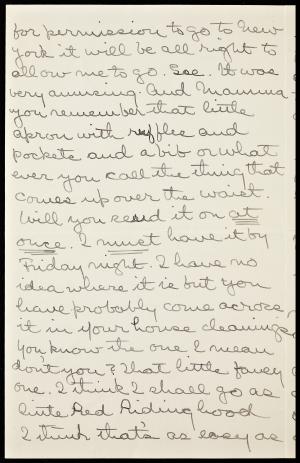 for permission to go to New
York it will be all right to
allow me to go. See. It was
very amusing. And Mamma
you remember that little
apron with ruffles and
pockets and a bib or what
ever you call the thing that
comes up over the waist.
Will you send it on at
once. I must have it by
Friday night. I have no
idea where it is but you
have probably come across
it in your house cleaning.
You know the one I mean
don't you? That little fancy
one. I think I shall go as
little Red Riding hood
I think that's as easy as